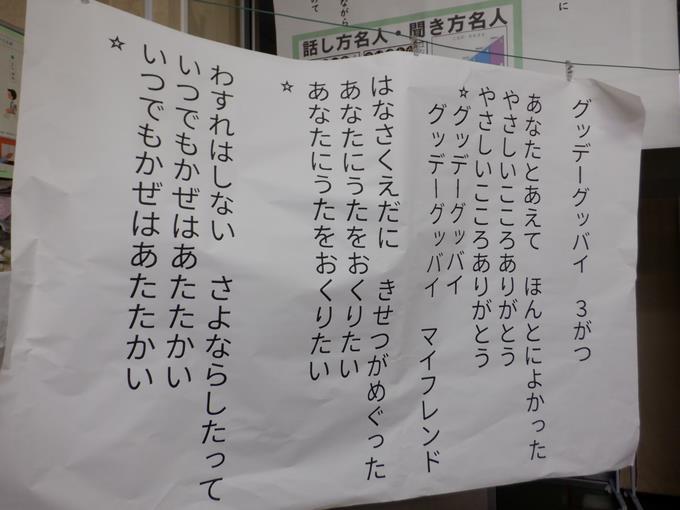 グッデーグッバイ　３がつ
あなたとあえて　ほんとによかった
やさしいこころありがとう
やさしいこころありがとう
☆グッデーグッバイ
グッデーグッバイ　マイフレンド
はなさくえだに　きせつがめぐった
あなたにうたをおくりたい
あなたにうたをおくりたい
☆
わすれはしない　さよならしたって
いつでもかぜはあたたかい
いつでもかぜはあたたかい
☆
話し方名人・聞き方名人
ながら
めて
に